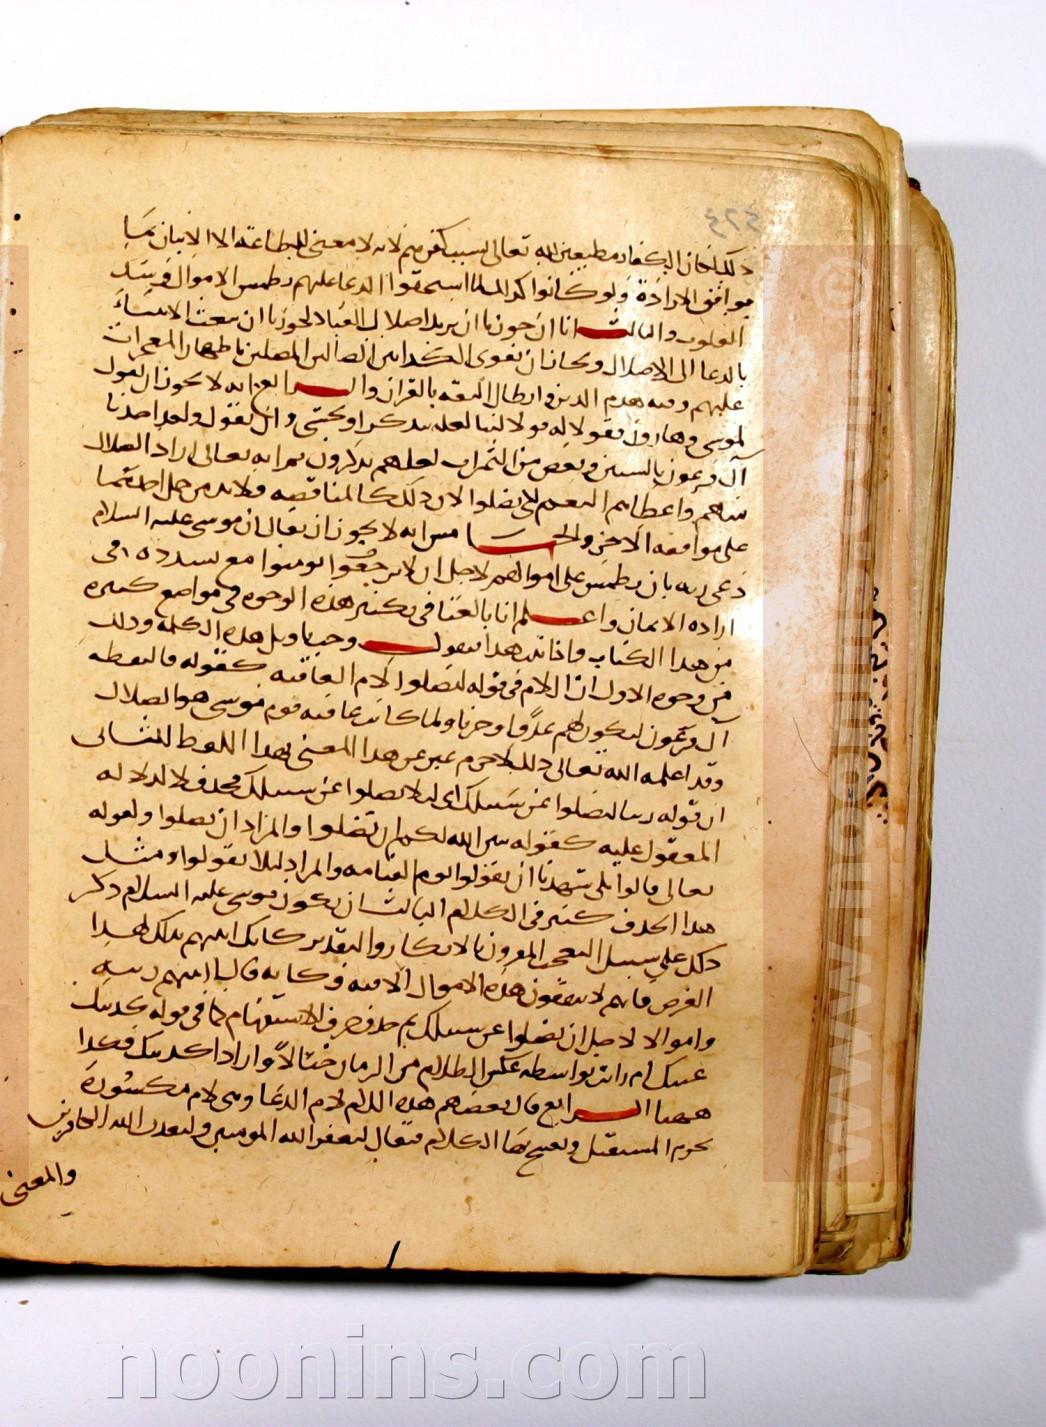 ٤٢٤
ذلك لكان الكفار مطيعين لله تعالى بسبب كفرهم لانه لا معنى للطاعة الا الاتيان بما
يوافق الارادة ولو كانوا كذلك لما استحقوا الدعا عليهم بطمس الاموال وبشد
القلوب والثالث انا ان جوزنا ان يريد اضلال العباد لجوزنا ان يبعث الانبياء
بالدعا الى الاضلال ولجاز ان يقوى الكذابين الضالين المضلين باظهار المعجزات
عليهم وفيه هدم الدين وابطال الثقه بالقران والرابع انه لا يجوز ان يقول
لموسى وهارون فقولا له قولا لينا لعله يتذكر او يخشى وان يقول ولقد اخذنا
آل فرعون بالسنين ونقص من الثمرات لعلهم يذكرون ثم انه تعالى اراد الضلال
منهم واعطاهم النعم لكى يضلوا لان ذلك كالمناقضه ولا بد من حمل احدهما
على موافقه الآخر والخامس انه لا يجوز ان يقال ان موسى عليه السلام
دعى ربه بان يطمس على اموالهم لاجل ان لا يؤمنوا مع تشدده فى
اراده الايمان واعلم انا بالغنا فى تكثير هذه الوجوه فى مواضع كثيره
من هذا الكتاب واذا ثبت هذا فنقول وجب تاويل هذه الكلمه وذلك
من وجوه الاول ان اللام فى قوله ليضلوا لام العاقبه كقوله فالتقطه
آل فرعون ليكون لهم عدوا وحزنا ولما كانت عاقبه قوم موسى هو الضلال
وقد اعلمه الله تعالى ذلك لا جرم عبر عن هذا المعنى بهذا اللفظ الثانى
ان قوله ربنا ليضلوا عن سبيلك اى لئلا يضلوا عن سبيلك فحذف لا لدلاله
المعقول عليه كقوله يبين الله لكم ان تضلوا والمراد ان لا تضلوا وكقوله
تعالى قالوا بلى شهدنا ان يقولوا يوم القيامه والمراد لئلا يقولوا ومثل
هذا الحذف كثير فى الكلام الثالث ان يكون موسى عليه السلام ذكر
ذلك على سبيل التعجب المقرون بالانكار والتقدير كانك اتيتهم ذلك لهذا
الغرض فانهم لا ينفقون هذه الاموال الا فيه وكانه قال اتيتهم زينه
واموالا لاجل ان يضلوا عن سبيلك ثم حذف حرف الاستفهام كما فى قوله كذبتك
عينك ام رايت بواسط غلس الظلام من الرباب خيالا اراد اكذبتك فكذا
ههنا الرابع قال بعضهم هذه اللام لام الدعا وهى لام مكسوره
تجزم المستقبل ويفتتح بها الكلام فيقال ليغفر الله المومنين وليعذب الله الكافرين
والمعنى
noonins.com